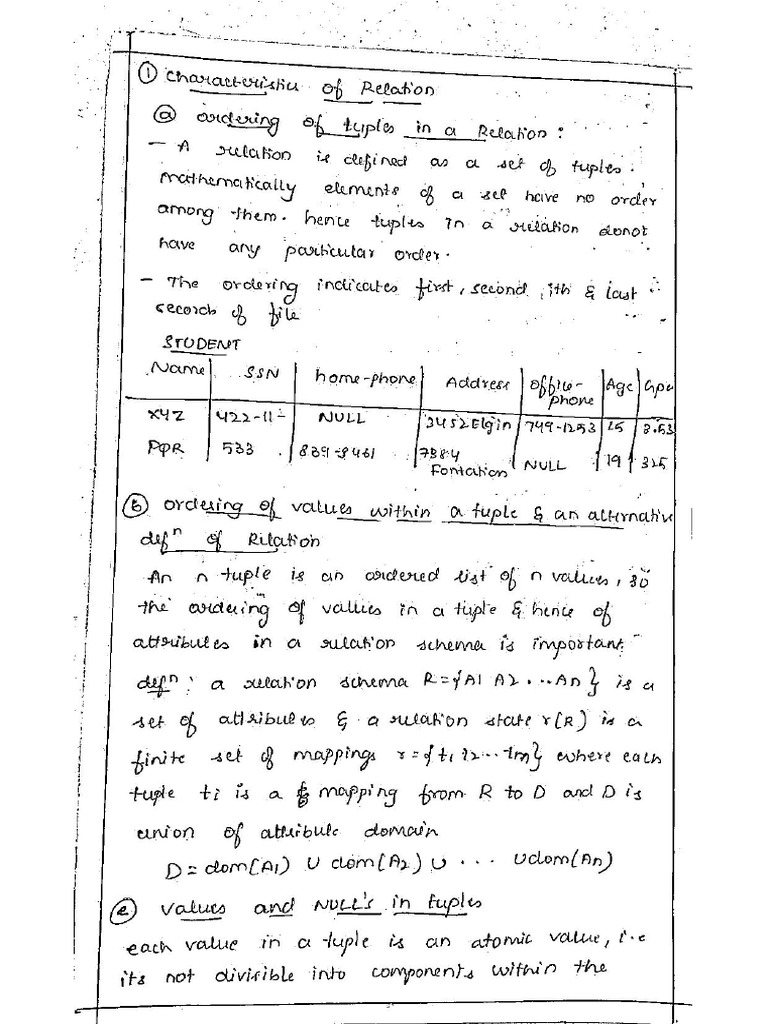 ① Characteristics of Relation
ⓐ ordering of tuples in a Relation :
- A relation is defined as a set of tuples.
Mathematically elements of a set have no order
among them. hence tuples in a relation donot
have any particular order.
- The ordering indicates first, second, ith & last
records of file
STUDENT
Name | SSN | home-phone | Address | Office-phone | Age | Gpa
XYZ | 422-11- | NULL | 3452 Elgin | 749-1253 | 25 | 3.53
PQR | 533 | 839-8461 | 7384 Fontation | NULL | 19 | 325
ⓑ ordering of values within a tuple & an alternative
defⁿ of Rilation
An n tuple is an ordered list of n values, so
the ordering of values in a tuple & hence of
attributes in a relation schema is important
defⁿ: a relation schema R={A1 A2 ... An} is a
set of attributes & a relation state r(R) is a
finite set of mappings r={t1 t2...tm} where each
tuple ti is a mapping from R to D and D is
union of attribute domain
D = dom(A1) U dom(A2) U ... Udom(An)
ⓒ values and NULL's in tuples
each value in a tuple is an atomic value, i.e
its not divisible into components within the